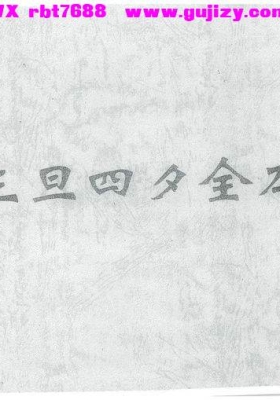 VX rbt7688 www.gujizy.com
三旦四夕全